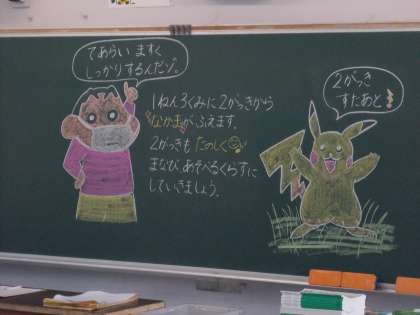 てあらい ますく
しっかりするんだゾ。
1ねん3くみに2がっきから
なかまがふえます。
2がっきも たのしく
まなび、あそべるくらすに
していきましょう。
2がっき
すたあと